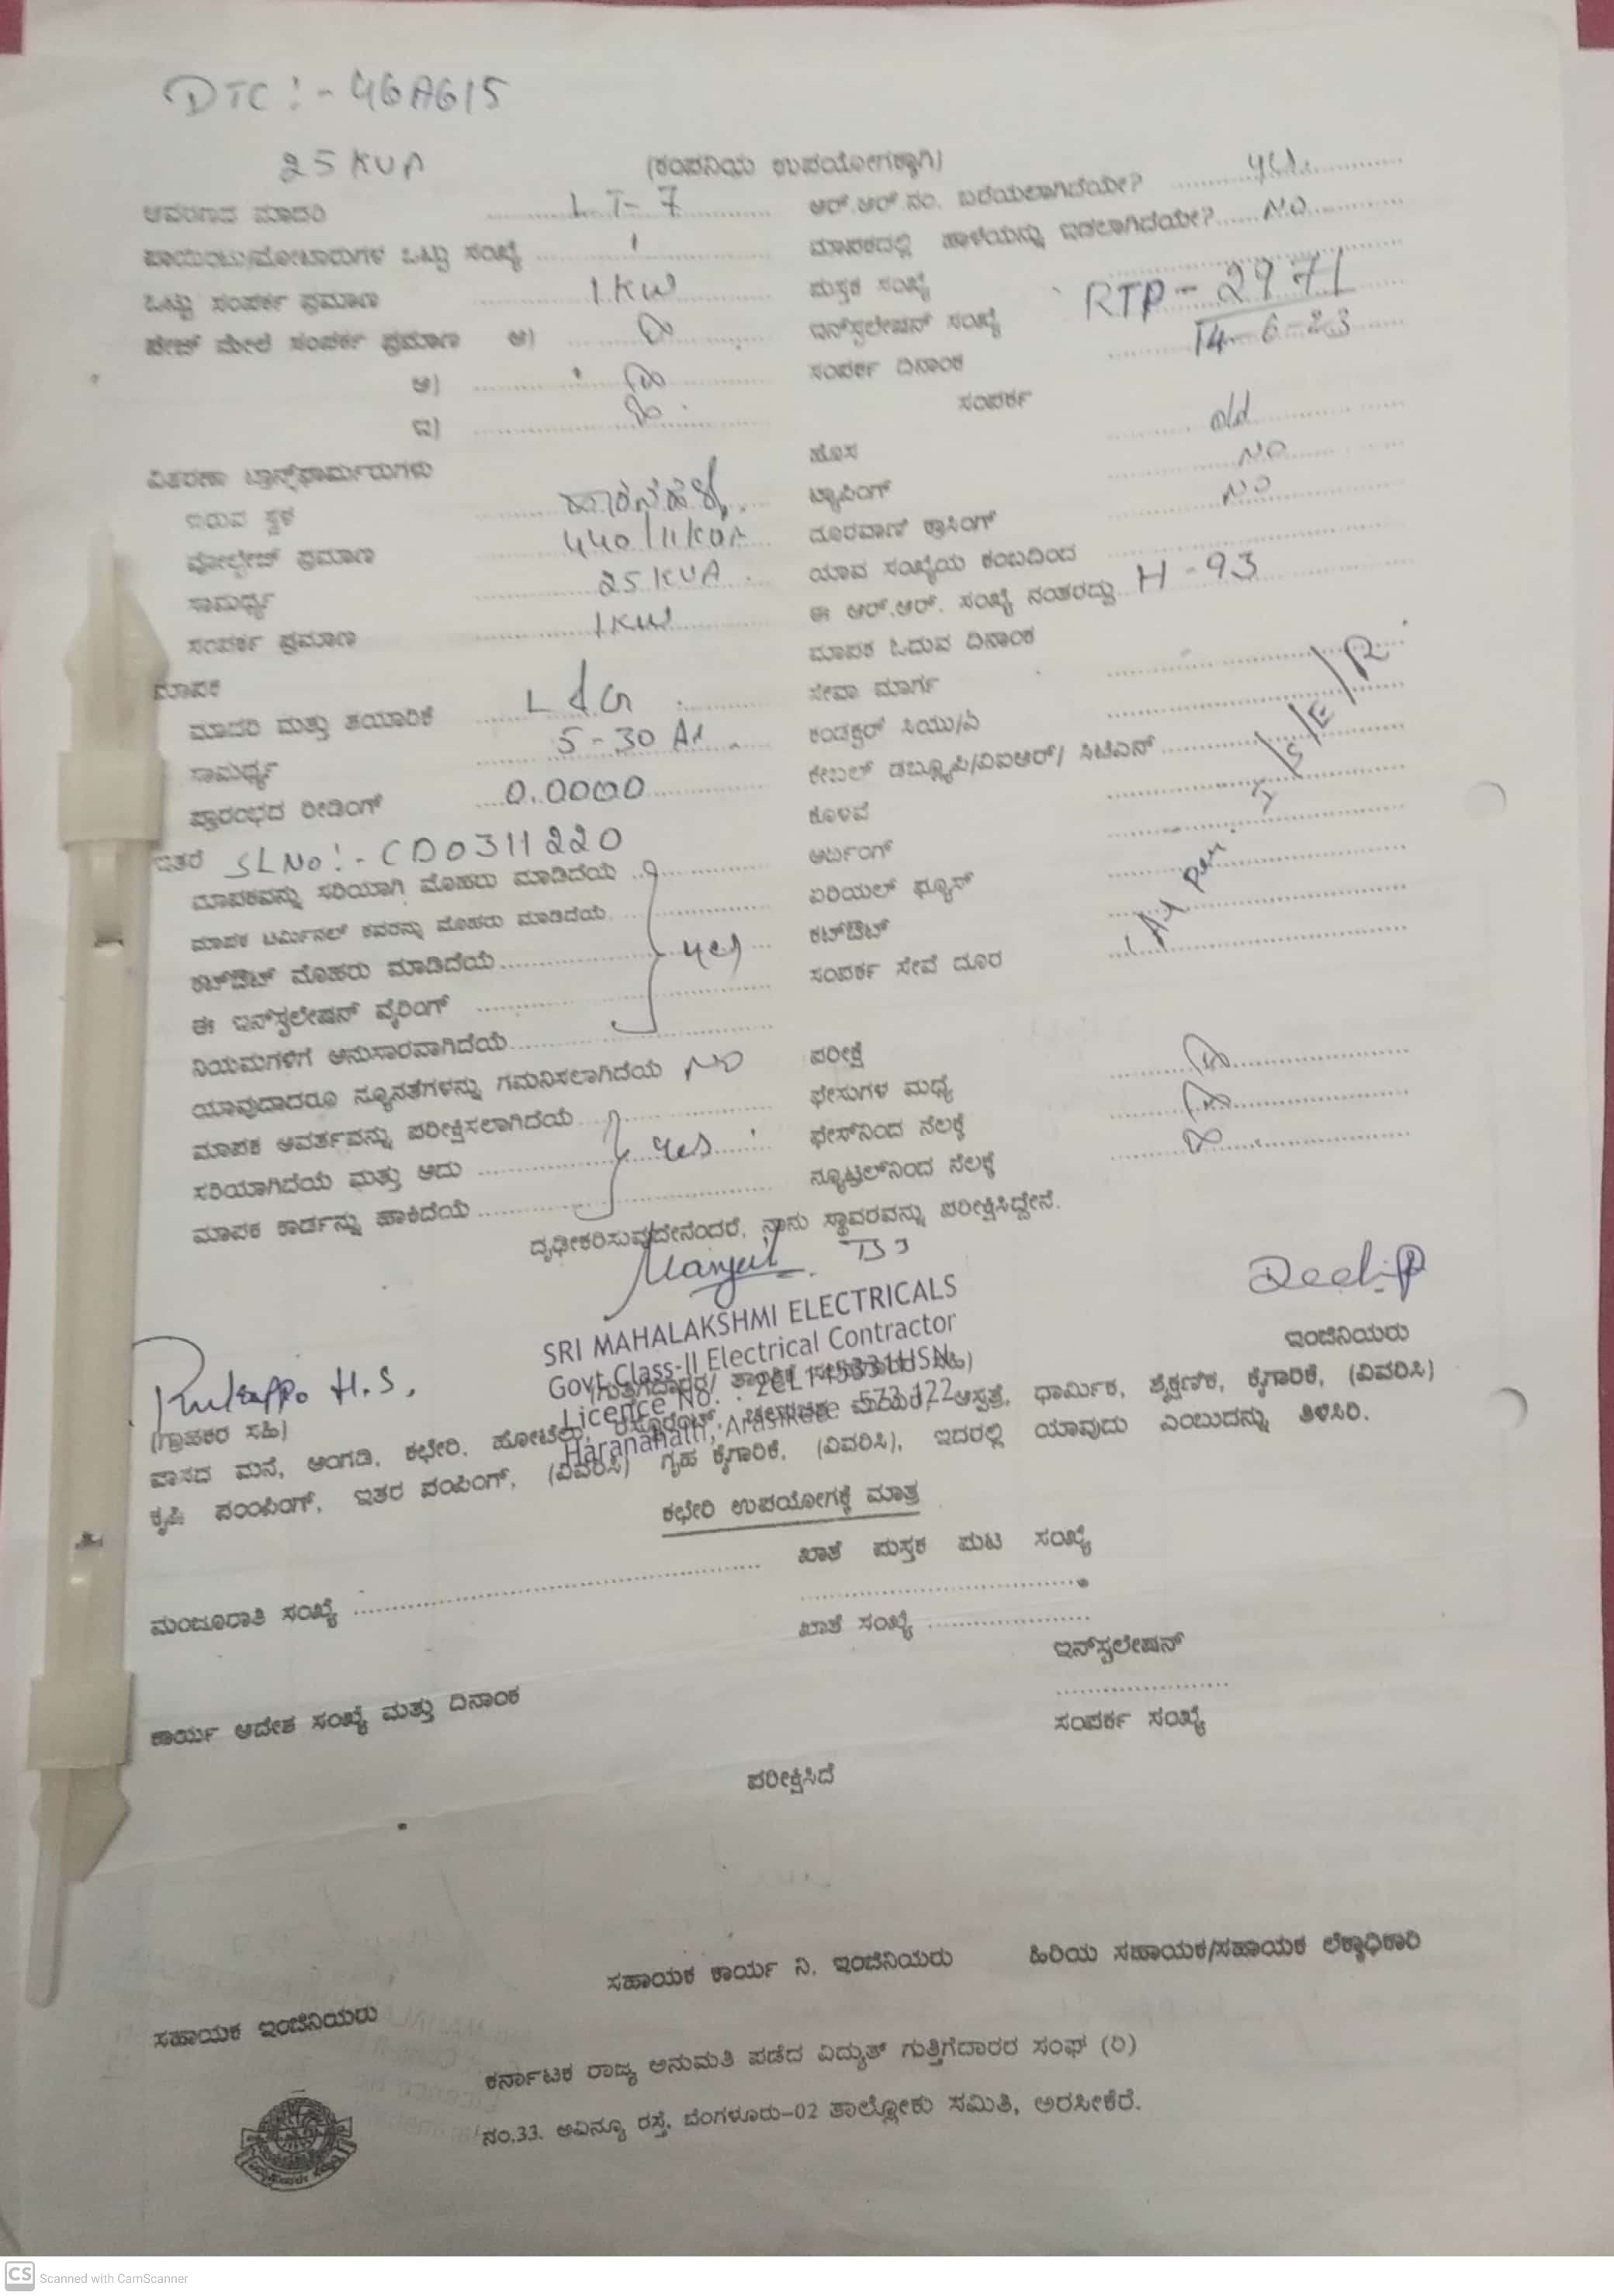 DTC :- 46AG15
25 KVA
(ಕಂಪನಿಯ ಉಪಯೋಗಕ್ಕಾಗಿ)
ಆವರಣದ ಮಾದರಿ LT-7
ಪಾಯಿಂಟು/ಮೋಟಾರುಗಳ ಒಟ್ಟು ಸಂಖ್ಯೆ 1
ಒಟ್ಟು ಸಂಪರ್ಕ ಪ್ರಮಾಣ 1 KW
ಫೇಜ್ ಮೇಲೆ ಸಂಪರ್ಕ ಪ್ರಮಾಣ ಅ)
ಆ)
ಇ)
ವಿತರಣಾ ಟ್ರಾನ್ಸ್‌ಫಾರ್ಮರುಗಳು
ಇರುವ ಸ್ಥಳ
ವೋಲ್ಟೇಜ್ ಪ್ರಮಾಣ 440/11KVA
ಸಾಮರ್ಥ್ಯ 25 KVA
ಸಂಪರ್ಕ ಪ್ರಮಾಣ 1KW
ಮಾಪಕ
ಮಾದರಿ ಮತ್ತು ತಯಾರಿಕೆ L&G
ಸಾಮರ್ಥ್ಯ 5-30 A
ಪ್ರಾರಂಭದ ರೀಡಿಂಗ್ 0.0000
ಇತರೆ SLNo:- CD0311220
ಮಾಪಕವನ್ನು ಸರಿಯಾಗಿ ಮೊಹರು ಮಾಡಿದೆಯೆ
ಮಾಪಕ ಟರ್ಮಿನಲ್ ಕವರನ್ನು ಮೊಹರು ಮಾಡಿದೆಯೆ
ಕಟ್‌ಔಟ್ ಮೊಹರು ಮಾಡಿದೆಯೆ yes
ಈ ಇನ್‌ಸ್ಟಲೇಷನ್ ವೈರಿಂಗ್
ನಿಯಮಗಳಿಗೆ ಅನುಸಾರವಾಗಿದೆಯೆ
ಯಾವುದಾದರೂ ನ್ಯೂನತೆಗಳನ್ನು ಗಮನಿಸಲಾಗಿದೆಯೆ NO
ಮಾಪಕ ಆವರ್ತವನ್ನು ಪರೀಕ್ಷಿಸಲಾಗಿದೆಯೆ
ಸರಿಯಾಗಿದೆಯೆ ಮತ್ತು ಅದು yes
ಮಾಪಕ ಕಾರ್ಡನ್ನು ಹಾಕಿದೆಯೆ
ಆರ್.ಆರ್.ನಂ. ಬರೆಯಲಾಗಿದೆಯೇ? yes
ಮಾಪಕದಲ್ಲಿ ಹಾಳೆಯನ್ನು ಇಡಲಾಗಿದೆಯೇ? NO
ಪುಸ್ತಕ ಸಂಖ್ಯೆ
ಇನ್‌ಸ್ಟಲೇಷನ್ ಸಂಖ್ಯೆ RTP-2971
ಸಂಪರ್ಕ ದಿನಾಂಕ 14-6-23
ಸಂಪರ್ಕ
ಹೊಸ old
ಟ್ಯಾಪಿಂಗ್ NO
ದೂರವಾಣಿ ಕ್ರಾಸಿಂಗ್ NO
ಯಾವ ಸಂಖ್ಯೆಯ ಕಂಬದಿಂದ
ಈ ಆರ್.ಆರ್. ಸಂಖ್ಯೆ ನಂತರದ್ದು H-93
ಮಾಪಕ ಓದುವ ದಿನಾಂಕ
ಸೇವಾ ಮಾರ್ಗ
ಕಂಡಕ್ಟರ್ ಸಿಯು/ಎ
ಕೇಬಲ್ ಡಬ್ಲ್ಯೂಪಿ/ವಿಐಆರ್/ ಸಿಟಿಎಸ್
ಕೊಳವೆ
ಅರ್ಥಿಂಗ್
ಏರಿಯಲ್ ಫ್ಯೂಸ್
ಕಟ್‌ಔಟ್
ಸಂಪರ್ಕ ಸೇವೆ ದೂರ
ಪರೀಕ್ಷೆ
ಫೇಸುಗಳ ಮಧ್ಯೆ
ಫೇಸ್‌ನಿಂದ ನೆಲಕ್ಕೆ
ನ್ಯೂಟ್ರಲ್‌ನಿಂದ ನೆಲಕ್ಕೆ
ದೃಢೀಕರಿಸುವುದೇನೆಂದರೆ, ನಾನು ಸ್ಥಾವರವನ್ನು ಪರೀಕ್ಷಿಸಿದ್ದೇನೆ.
SRI MAHALAKSHMI ELECTRICALS
Govt Class-II Electrical Contractor
Licence No. : 2CL145331HSN
Haranahalli, Arasikere - 573 122
ಇಂಜಿನಿಯರು
(ಗ್ರಾಹಕರ ಸಹಿ)
ವಾಸದ ಮನೆ, ಅಂಗಡಿ, ಕಛೇರಿ, ಹೋಟೆಲು, ಆಸ್ಪತ್ರೆ, ಧಾರ್ಮಿಕ, ಶೈಕ್ಷಣಿಕ, ಕೈಗಾರಿಕೆ, (ವಿವರಿಸಿ)
ಕೃಷಿ ಪಂಪಿಂಗ್, ಇತರ ಪಂಪಿಂಗ್, (ವಿವರಿಸಿ) ಗೃಹ ಕೈಗಾರಿಕೆ, (ವಿವರಿಸಿ), ಇದರಲ್ಲಿ ಯಾವುದು ಎಂಬುದನ್ನು ತಿಳಿಸಿರಿ.
ಕಛೇರಿ ಉಪಯೋಗಕ್ಕೆ ಮಾತ್ರ
ಮಂಜೂರಾತಿ ಸಂಖ್ಯೆ
ಖಾತೆ ಪುಸ್ತಕ ಪುಟ ಸಂಖ್ಯೆ
ಖಾತೆ ಸಂಖ್ಯೆ
ಇನ್‌ಸ್ಟಲೇಷನ್
ಸಂಪರ್ಕ ಸಂಖ್ಯೆ
ಕಾರ್ಯ ಆದೇಶ ಸಂಖ್ಯೆ ಮತ್ತು ದಿನಾಂಕ
ಪರೀಕ್ಷಿಸಿದೆ
ಸಹಾಯಕ ಇಂಜಿನಿಯರು
ಸಹಾಯಕ ಕಾರ್ಯ ನಿ. ಇಂಜಿನಿಯರು
ಹಿರಿಯ ಸಹಾಯಕ/ಸಹಾಯಕ ಲೆಕ್ಕಾಧಿಕಾರಿ
ಕರ್ನಾಟಕ ರಾಜ್ಯ ಅನುಮತಿ ಪಡೆದ ವಿದ್ಯುತ್ ಗುತ್ತಿಗೆದಾರರ ಸಂಘ (ರಿ)
ನಂ.33. ಅವಿನ್ಯೂ ರಸ್ತೆ, ಬೆಂಗಳೂರು-02 ತಾಲ್ಲೋಕು ಸಮಿತಿ, ಅರಸೀಕೆರೆ.
CS Scanned with CamScanner